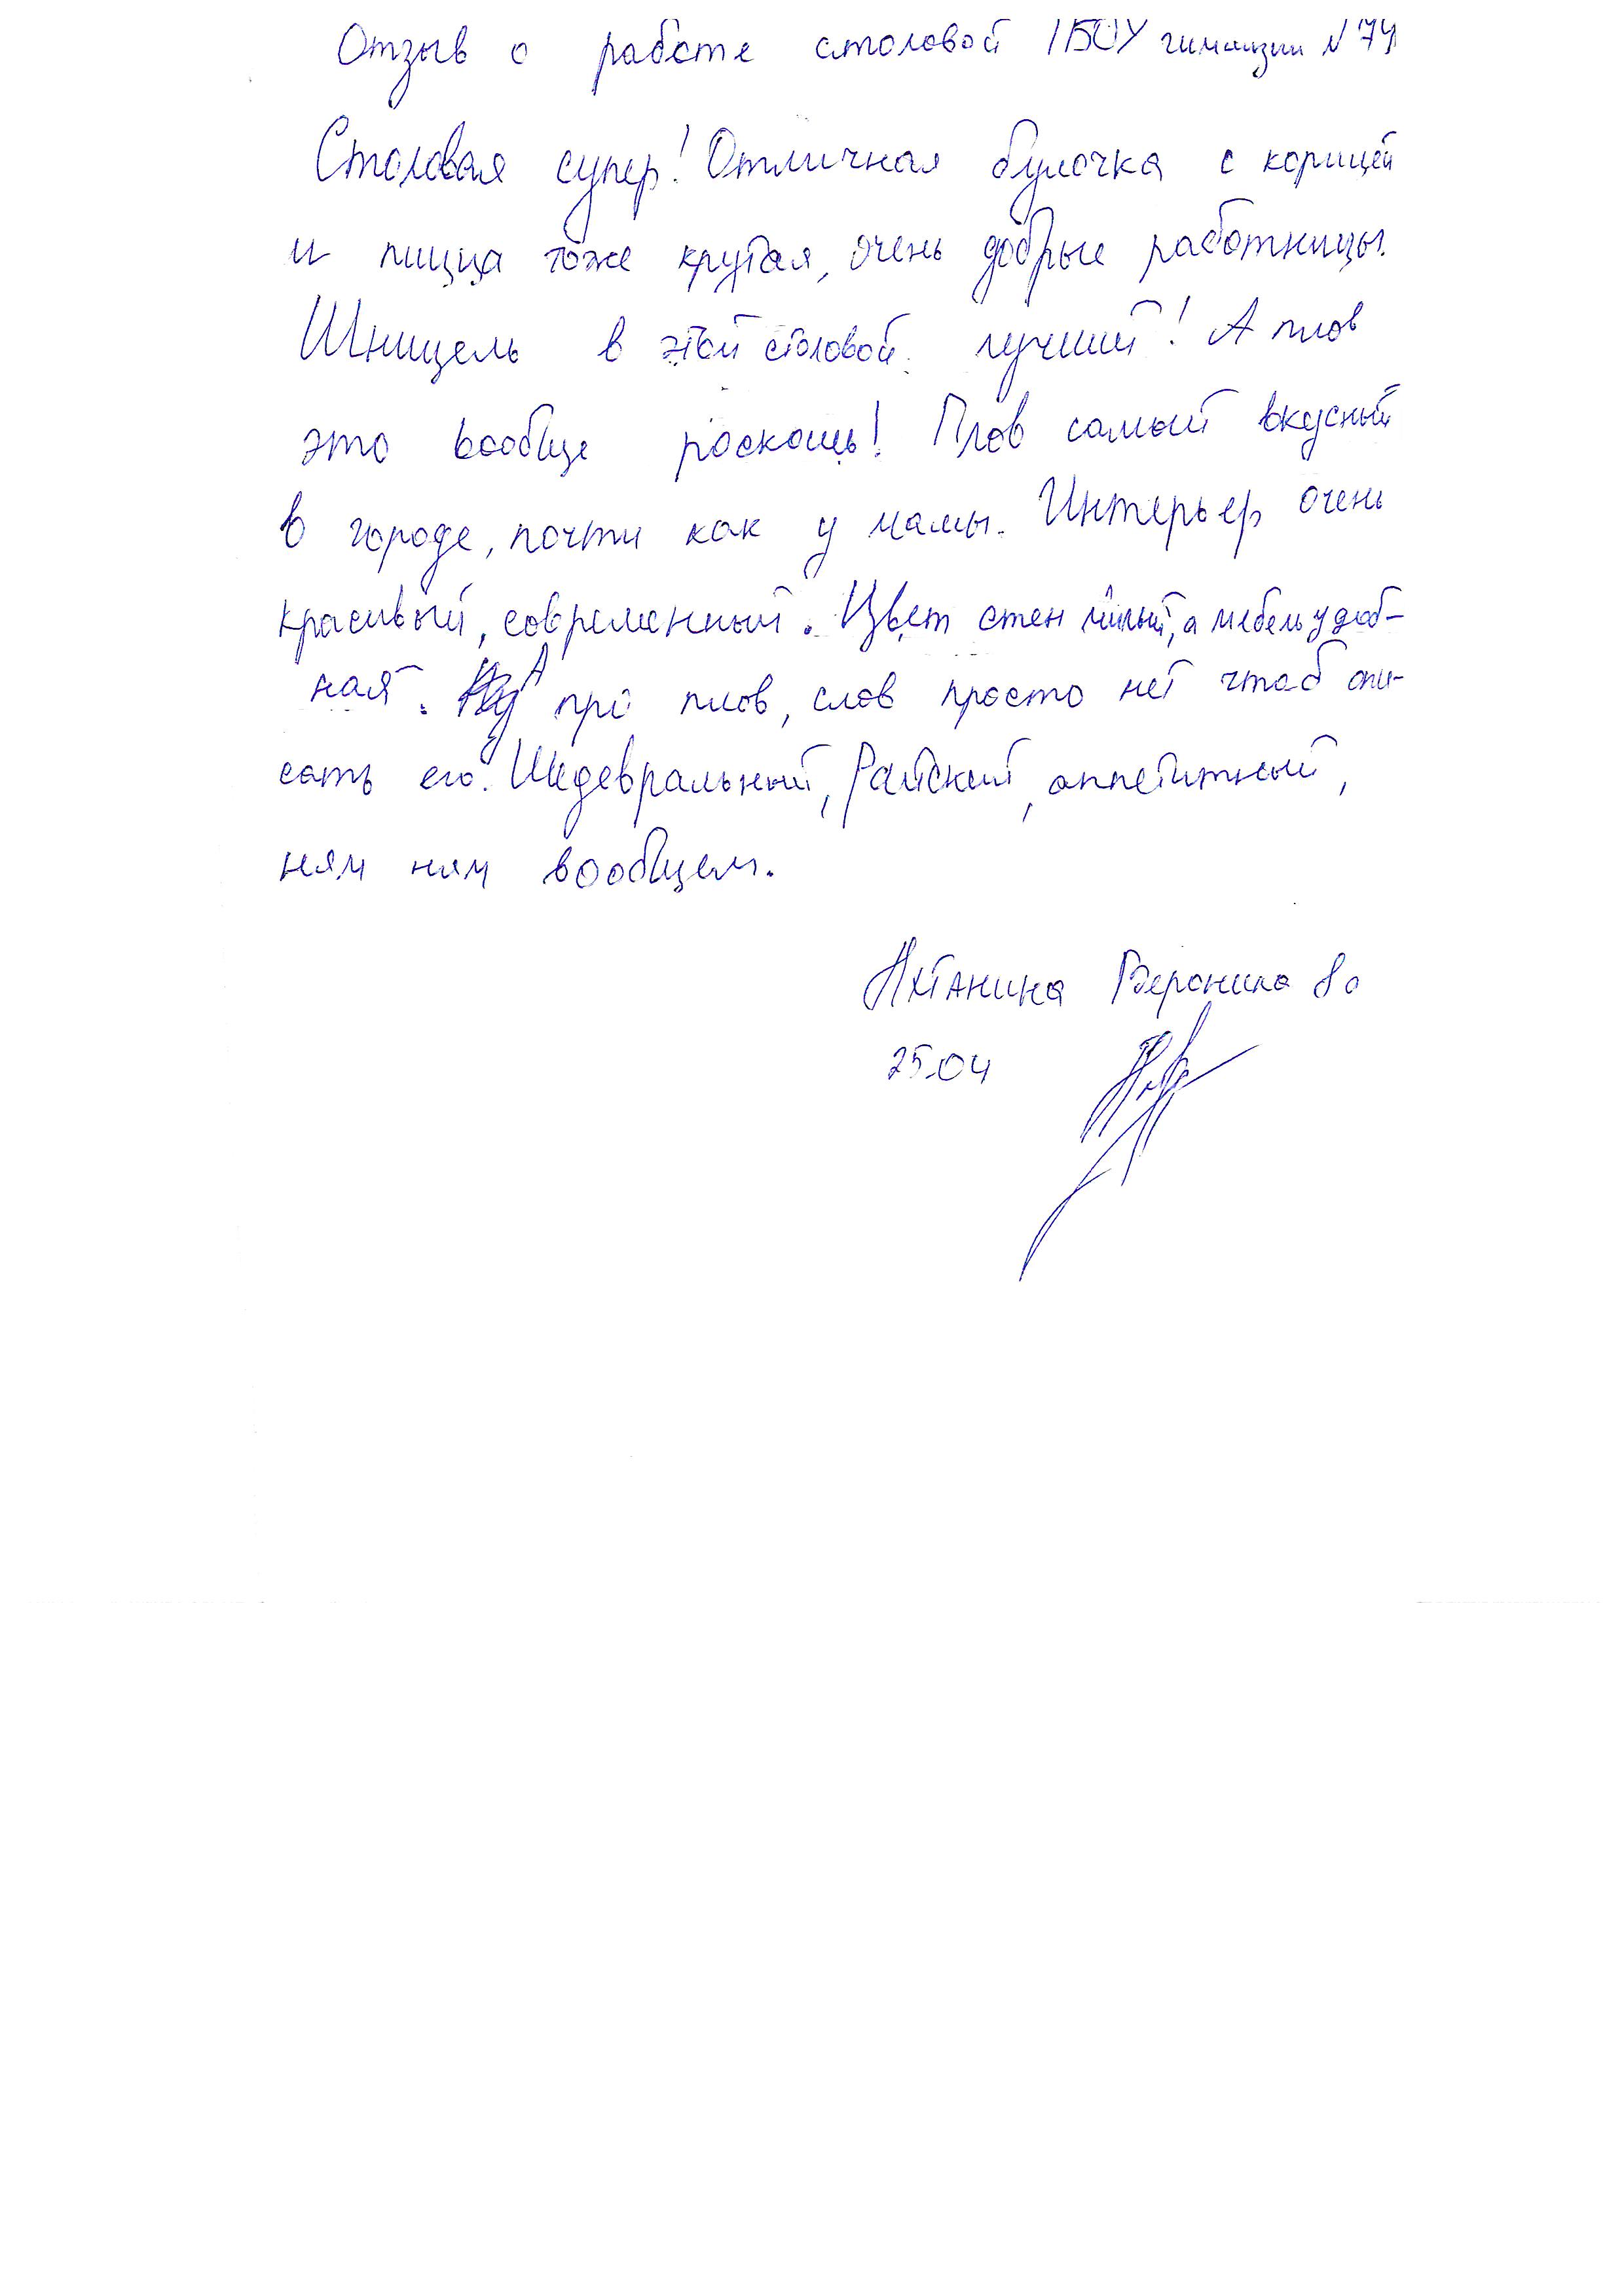 Отзыв о работе столовой ГБОУ гимназии N 74
Столовая супер! Отличная булочка с корицей
и пицца тоже крутая, очень добрые работницы.
Шницель в этой столовой лучший! А плов
это вообще роскошь! Плов самый вкусный
в городе, почти как у мамы. Интерьер очень
красивый, современный. Цвет стен милый, а мебель удоб-
ная. А про плов, слов просто нет чтоб опи-
сать его. Шедевральный, Райский, аппетитный,
ням ням вообщем.
Вероника 8
25.04